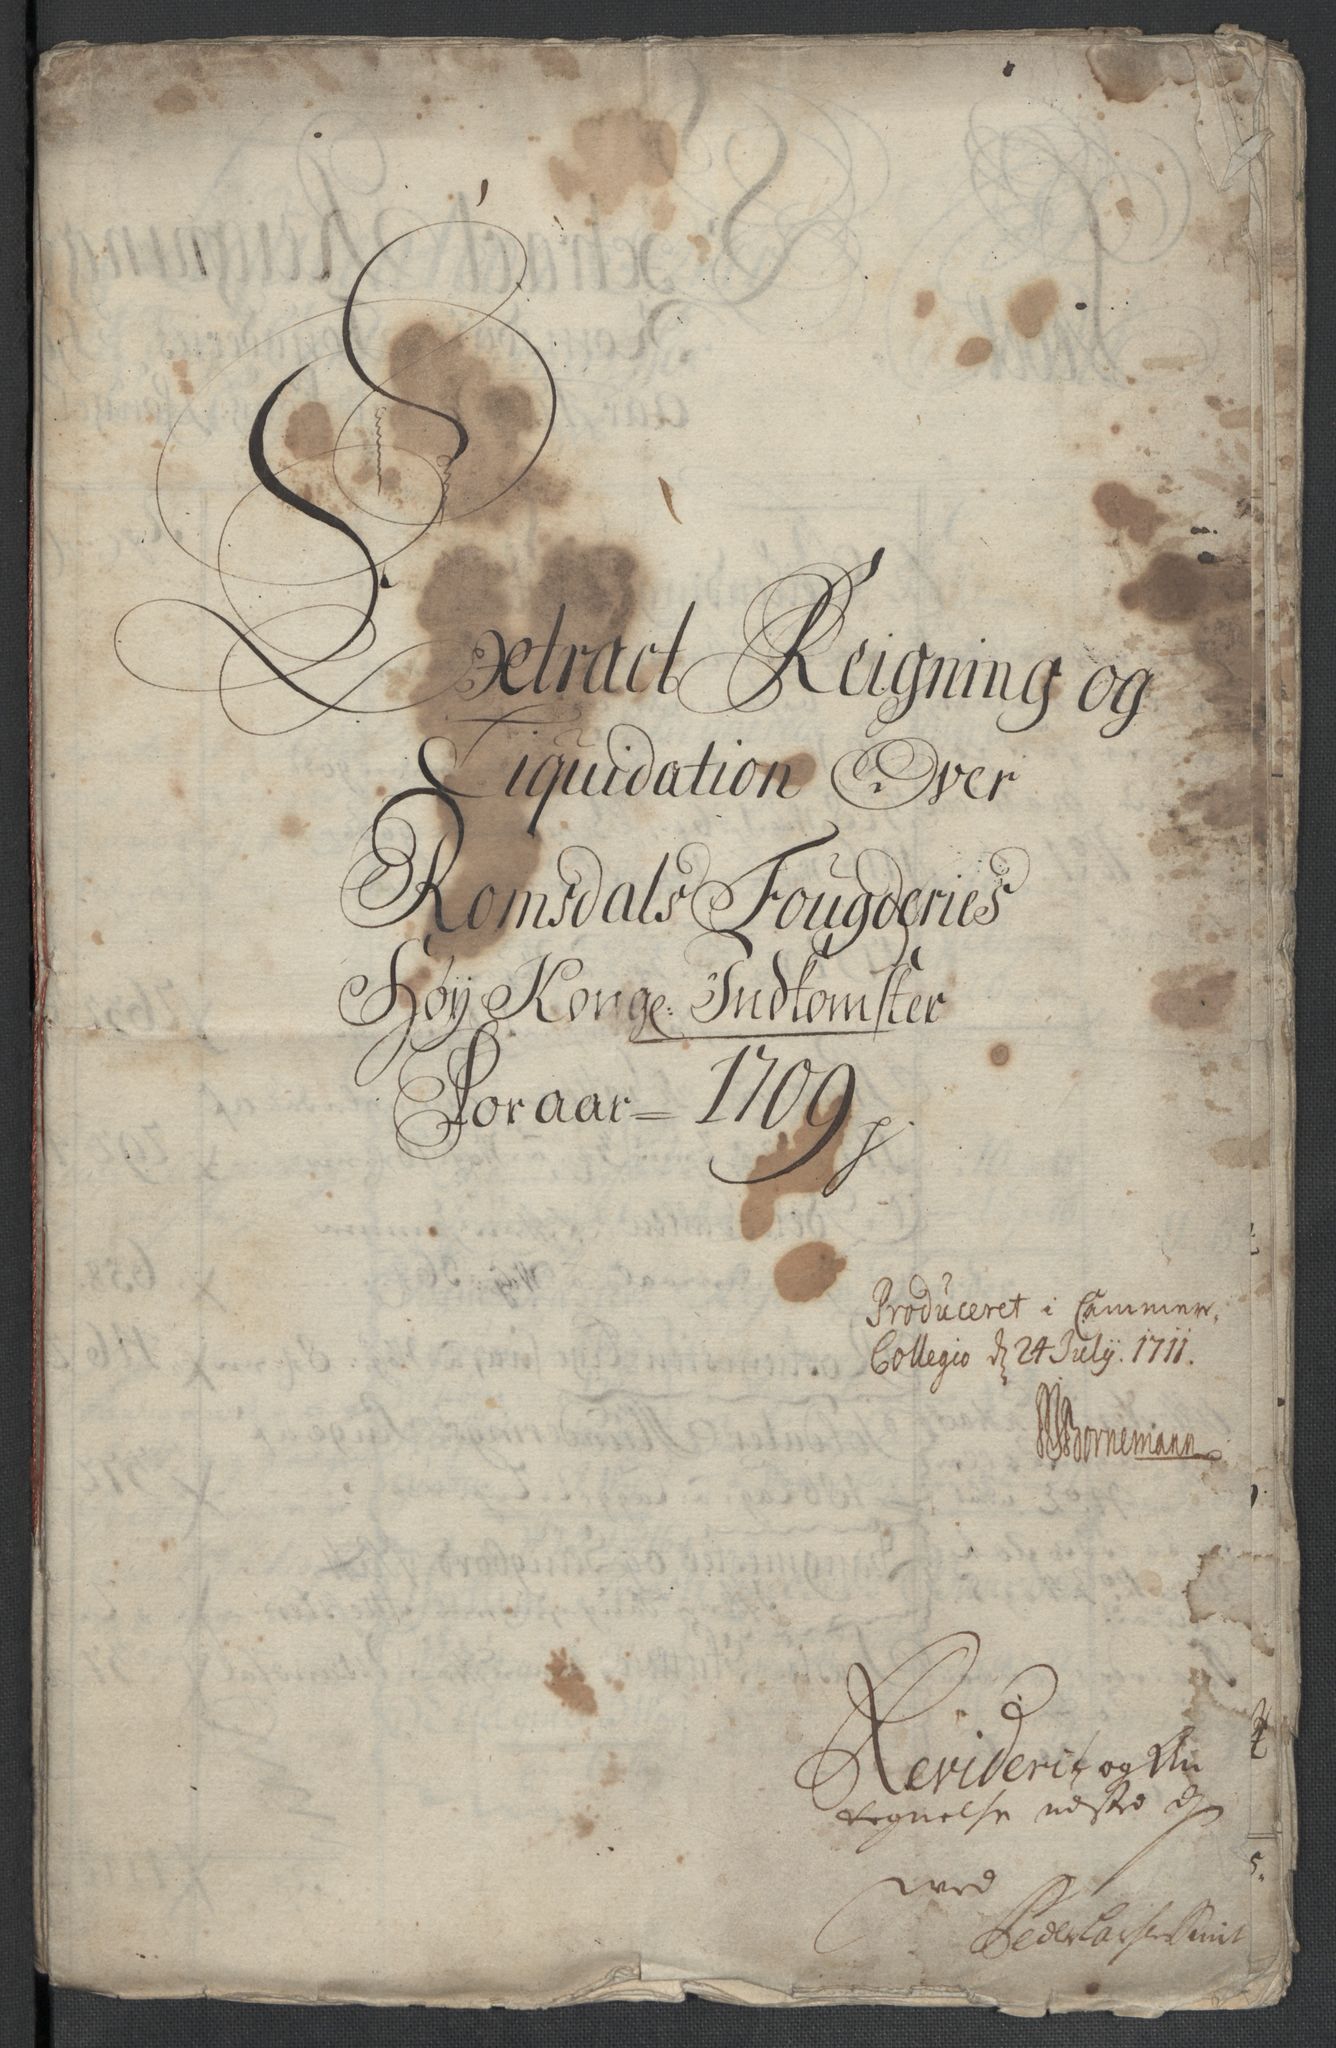 Extract Reigning og
Liquidation Over
Romsdals Fougderies
Høÿ Konge: Indkomster
For aar = 1709
Produceret i Cammer
Collegio d 24 Julÿ. 1711.
Bornemann
Reviderit og An
tegnelse
ved
Peder Larsen